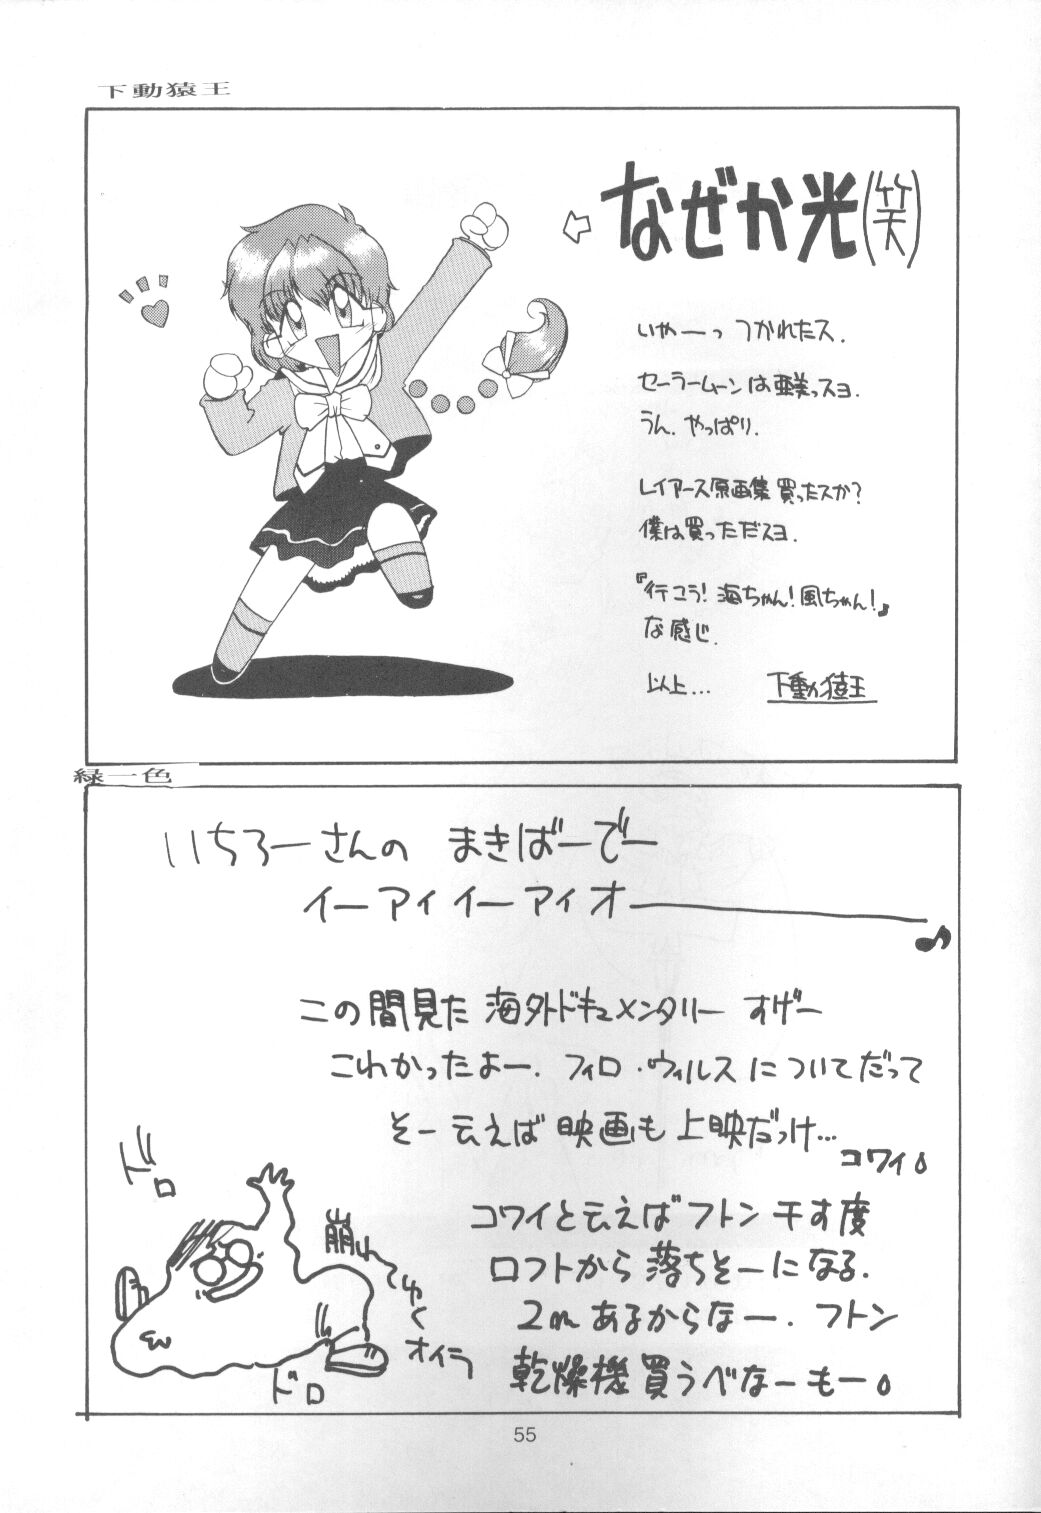 下動猿王
なぜか光(笑)
いやーっ つかれたス.
セーラームーンは亜美っスヨ.
うん. やっぱり.
レイアース原画集 買ったスか?
僕は買っただスヨ.
『行こう! 海ちゃん! 風ちゃん!』
な感じ.
以上... 下動猿王
緑一色
いちろーさんの まきばーでー
イーアイイーアイオー♪
この間見た 海外ドキュメンタリー すげー
こわかったよー. フィロ・ウィルスについてだって
そー云えば 映画も上映だっけ...
コワイ。
ドロ
崩れ
ゆく
オイラ
ドロ
コワイと云えばフトン干す度
ロフトから落ちそーになる.
2mあるからなー. フトン
乾燥機買うべなーもー。
55